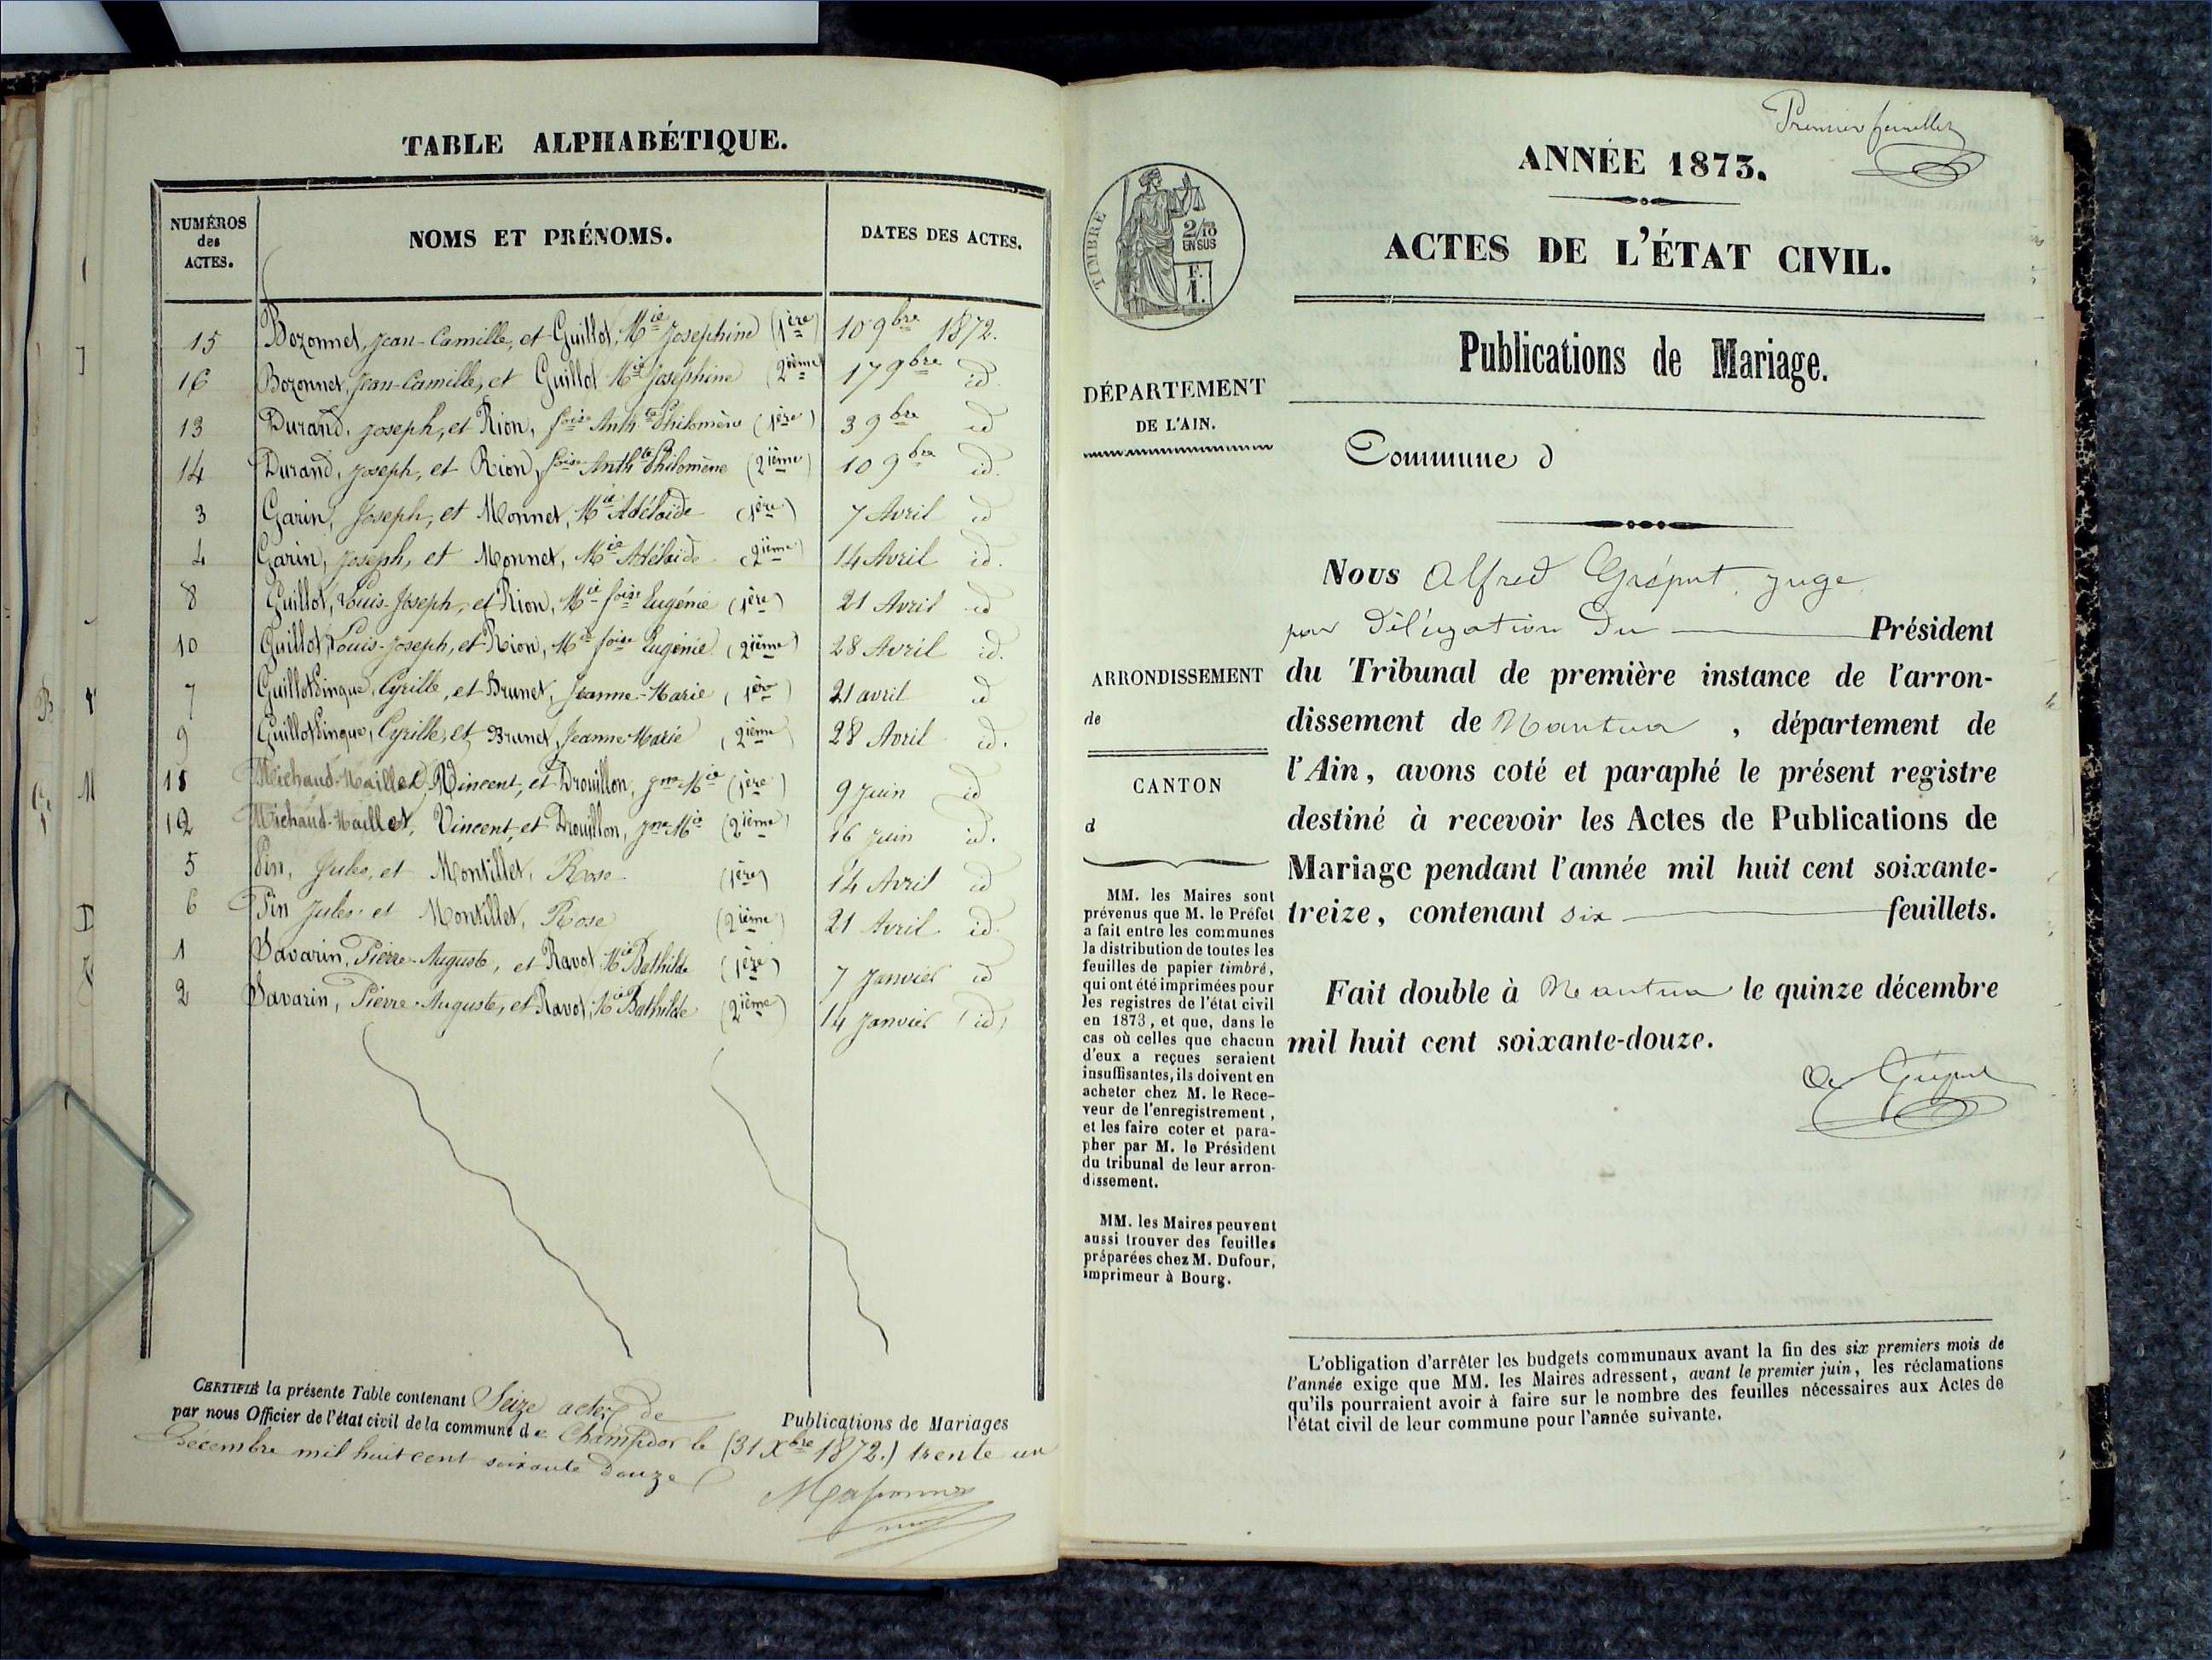 TABLE ALPHABÉTIQUE.
NUMÉROS
des
ACTES.
NOMS ET PRÉNOMS.
DATES DES ACTES.
15 Bozonnet, Jean-Camille, et Guillot, Mie Josephine (1ère) 10 9bre 1872.
16 Bozonnet, Jean-Camille, et Guillot Mie Joséphine (2ième) 17 9bre id.
13 Durand, Joseph, et Rion, foise Anthte Philomène (1ère) 3 9bre id
14 Durand, Joseph, et Rion, foise Anthte Philomène (2ième) 10 9bre id.
3 Garin, Joseph, et Monnet, Mie Adélaïde (1ère) 7 Avril id
4 Garin, Joseph, et Monnet, Mie Adélaïde (2ième) 14 Avril id.
8 Guillot, Louis-Joseph, et Rion, Mie foise Eugénie (1ère) 21 Avril id
10 Guillot, Louis-Joseph, et Rion, Mie foise Eugénie (2ième) 28 Avril id.
7 Guillot Pingue, Cyrille, et Brunet, Jeanne-Marie (1ère) 21 avril id
9 Guillot Pingue, Cyrille, et Brunet, Jeanne Marie (2ième) 28 Avril id.
11 Michaud-Maillet, Vincent, et Drouillon, Jne Mie (1ère) 9 Juin id
12 Michaud-Maillet, Vincent, et Drouillon, Jne Mie (2ième) 16 Juin id.
5 Pin, Jules, et Montillet, Rose (1ère) 14 Avril id
6 Pin Jules et Montillet, Rose (2ième) 21 Avril id.
1 Savarin, Pierre-Auguste, et Ravot, Mie Bathilde (1ère) 7 Janvier id
2 Savarin, Pierre-Auguste, et Ravot, Mie Bathilde (2ième) 14 Janvier (id)
CERTIFIÉ la présente Table contenant Seize actes de Publications de Mariages
par nous Officier de l'état civil de la commune de Champdor le (31 Xbre 1872.) trente un
Décembre mil huit cent soixante douze
Premier feuillet
ANNÉE 1873.
TIMBRE
2/10
EN SUS
F.
1.
ACTES DE L'ÉTAT CIVIL.
Publications de Mariage.
DÉPARTEMENT
DE L'AIN.
Commune d
ARRONDISSEMENT
de
CANTON
d
MM. les Maires sont
prévenus que M. le Préfet
a fait entre les communes
la distribution de toutes les
feuilles de papier timbré,
qui ont été imprimées pour
les registres de l'état civil
en 1873, et que, dans le
cas où celles que chacun
d'eux a reçues seraient
insuffisantes, ils doivent en
acheter chez M. le Rece-
veur de l'enregistrement,
et les faire coter et para-
pher par M. le Président
du tribunal de leur arron-
dissement.
MM. les Maires peuvent
aussi trouver des feuilles
préparées chez M. Dufour,
imprimeur à Bourg.
Nous Alfred Gréput, juge
par délégation du Président
du Tribunal de première instance de l'arron-
dissement de Nantua , département de
l'Ain, avons coté et paraphé le présent registre
destiné à recevoir les Actes de Publications de
Mariage pendant l'année mil huit cent soixante-
treize, contenant six feuillets.
Fait double à Nantua le quinze décembre
mil huit cent soixante-douze.
L'obligation d'arrêter les budgets communaux avant la fin des six premiers mois de
l'année exige que MM. les Maires adressent, avant le premier juin, les réclamations
qu'ils pourraient avoir à faire sur le nombre des feuilles nécessaires aux Actes de
l'état civil de leur commune pour l'année suivante.